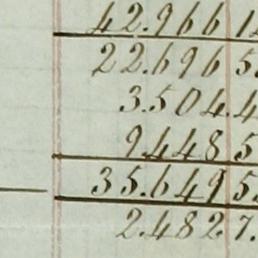 42.966 1
22.696 5
3.504 4
9448 5
35.649 5
2.482 7